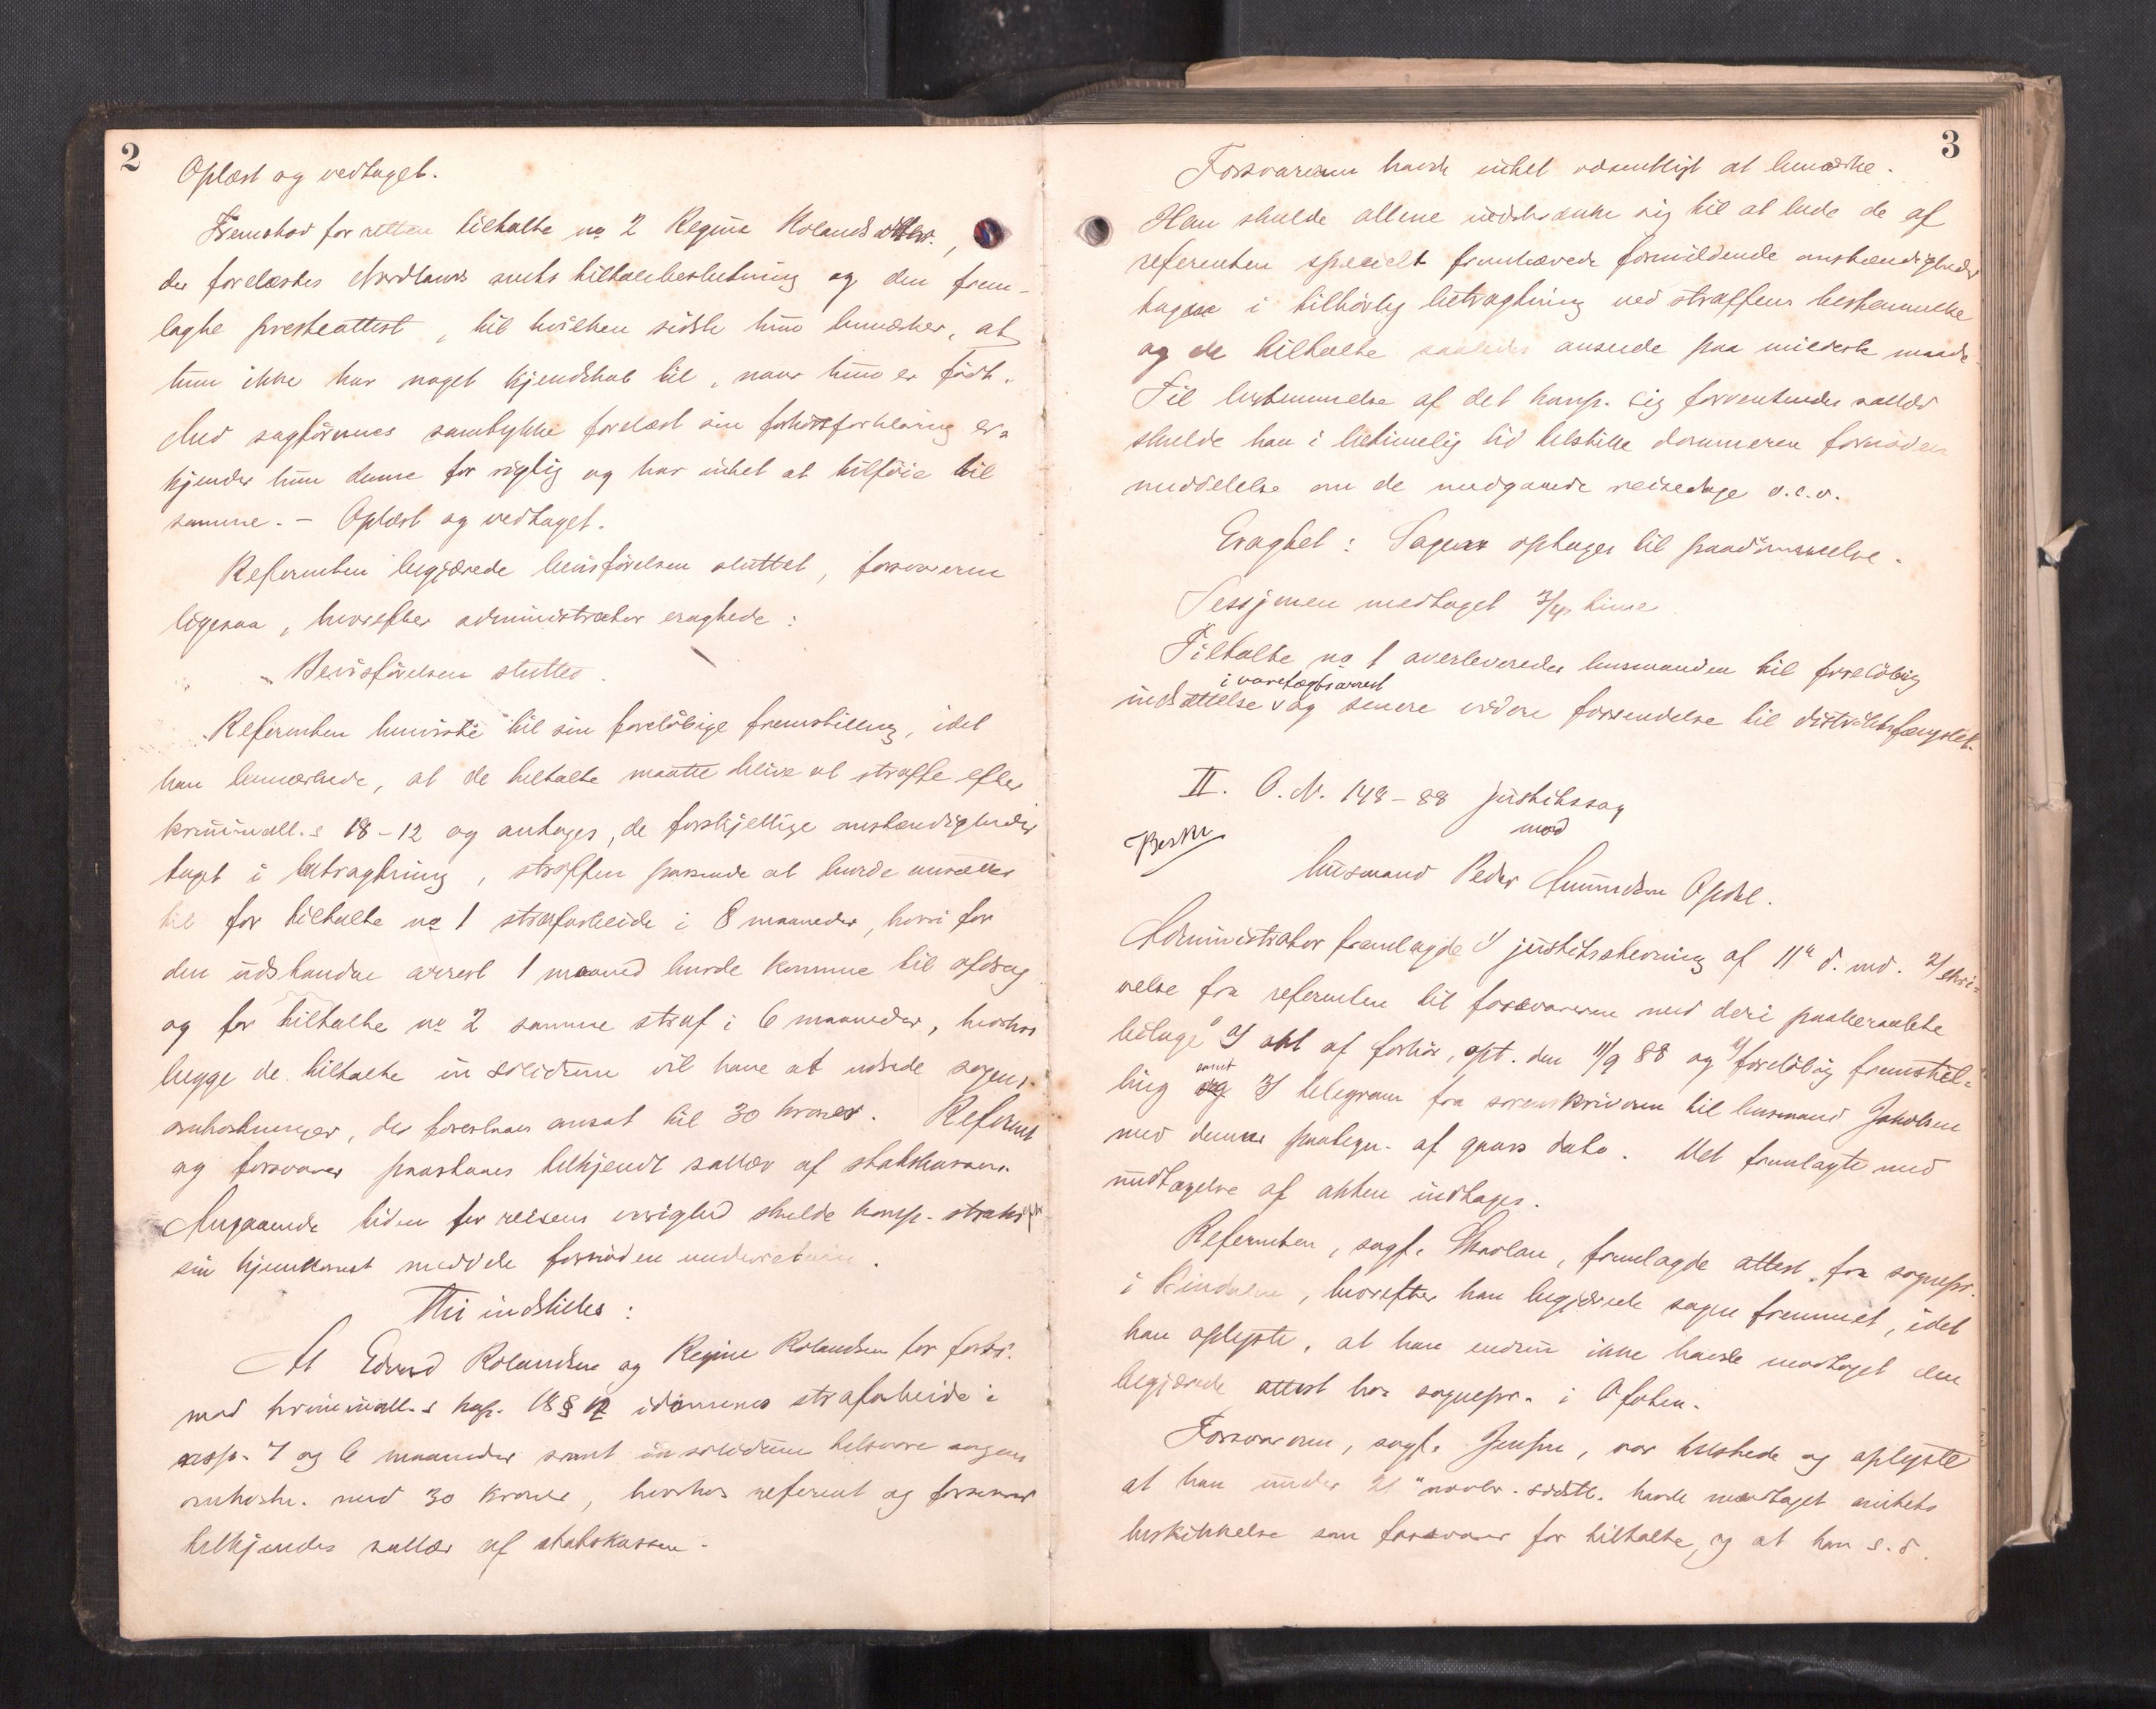 2
Oplæst og vedtaget.
Fremstod for retten tiltalte no 2 Regine Rolandsdatter,
der forelæstes Nordlands amts tiltalebeslutning og den frem-
lagte presteattest, til hvilken sidste hun bemærker, at
hun ikke har noget kjendskab til, naar hun er født.
Med sagførernes samtykke forelæst sin forhørsforklaring er-
kjender hun denne for rigtig og har intet at tilføie til
samme. - Oplæst og vedtaget.
Referenten begjærede bevisførelsen sluttet, forsvareren
ligesaa, hvorefter administrator eragtede:
Bevisførelsen sluttes.
Referenten henviste til sin foreløbige fremstilling, idet
han bemærkede, at de tiltalte maatte blive at straffe efter
kriminall.s 18-12 og antages, de forskjellige omstændigheder
taget i betragtning, straffen passende at burde ansættes
til for tiltalte no 1 strafarbeide i 8 maaneder, hvori for
den udstandne arrest 1 maaned burde komme til afdrag
og for tiltalte no 2 samme straf i 6 maaneder, hvorhos
begge de tiltalte in solidum vil have at udrede sagens
omkostninger, der foreslaaes ansat til 30 kroner. Referent
og forsvarer paastaaes tilkjendt sallær af statskassen.
Angaaende tiden for reisens varighed skulde komp. straks efter
sin hjemkomst meddele fornøden underretning.
Thi indstilles:
At Edvard Rolandsen og Regine Rolandsen for forbr.
mod kriminall.s kap. 18 § 12 idømmes strafarbeide i
resp. 7 og 6 maaneder samt in solidum tilsvare sagens
omkostn. med 30 kroner, hvorhos referent og forsvarer
tilkjendes sallær af statskassen.
3
Forsvareren havde intet væsentligt at bemærke.
Han skulde allene indskrænke sig til at bede de af
referenten specielt fremhævede formildende omstændigheder
tagne i tilbørlig betragtning ved straffens bestemmelse
og de tiltalte saaledes ansede paa mildeste maade.
Til bestemmelse af det komp. sig forventendes sallær
skulde han i betimelig tid tilstille dommeren fornøden
meddelelse om de medgaaede reisedage o.s.v.
Eragtet: Sagen optages til paadømmelse.
Sessjonen medtaget 3/4 time
Tiltalte no 1 overleveredes lensmanden til foreløbig
i varetægtsarrest
indsættelse v og senere videre forsendelse til distriktsfængslet.
II. O. N. 148-88 Justitssag
mod
Besk
husmand Peder Amundsen Opdal.
Administrator fremlagde 1/ justitsstevning af 11te d. md. 2/ skri-
velse fra referenten til forsvareren med deri paaberaabte
bilage a/ akt af forhør, opt. den 11/9 88 og b/ foreløbig fremstil-
samt
ling og 3/ telegram fra sorenskriveren til lensmand Jakobsen
med dennes paategn. af gaars dato. Det fremlagte med
undtagelse af akten indtages.
Referenten, sagf. Skavlan, fremlagde attest fra sognepr.
i , hvorefter han begjærede sagen fremmet, idet
han oplyste, at han endnu ikke havde modtaget den
begjærede attest hos sognepr. i Ofoten.
Forsvareren, sagf. Jensen, var tilstede og oplyste
at han under 21de novbr. sidstl. havde modtaget amtets
beskikkelse som forsvarer for tiltalte, og at han s. d.